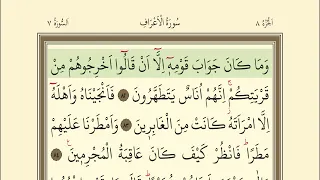 الجزء ٨ سورة الأعراف السورة ٧
وَمَا كَانَ جَوَابَ قَوْمِهِ إِلَّا أَنْ قَالُوا أَخْرِجُوهُمْ مِنْ
قَرْيَتِكُمْ إِنَّهُمْ أُنَاسٌ يَتَطَهَّرُونَ ﴿٨٢﴾ فَأَنْجَيْنَاهُ وَأَهْلَهُ
إِلَّا امْرَأَتَهُ كَانَتْ مِنَ الْغَابِرِينَ ﴿٨٣﴾ وَأَمْطَرْنَا عَلَيْهِمْ
مَطَرًا فَانْظُرْ كَيْفَ كَانَ عَاقِبَةُ الْمُجْرِمِينَ ﴿٨٤﴾